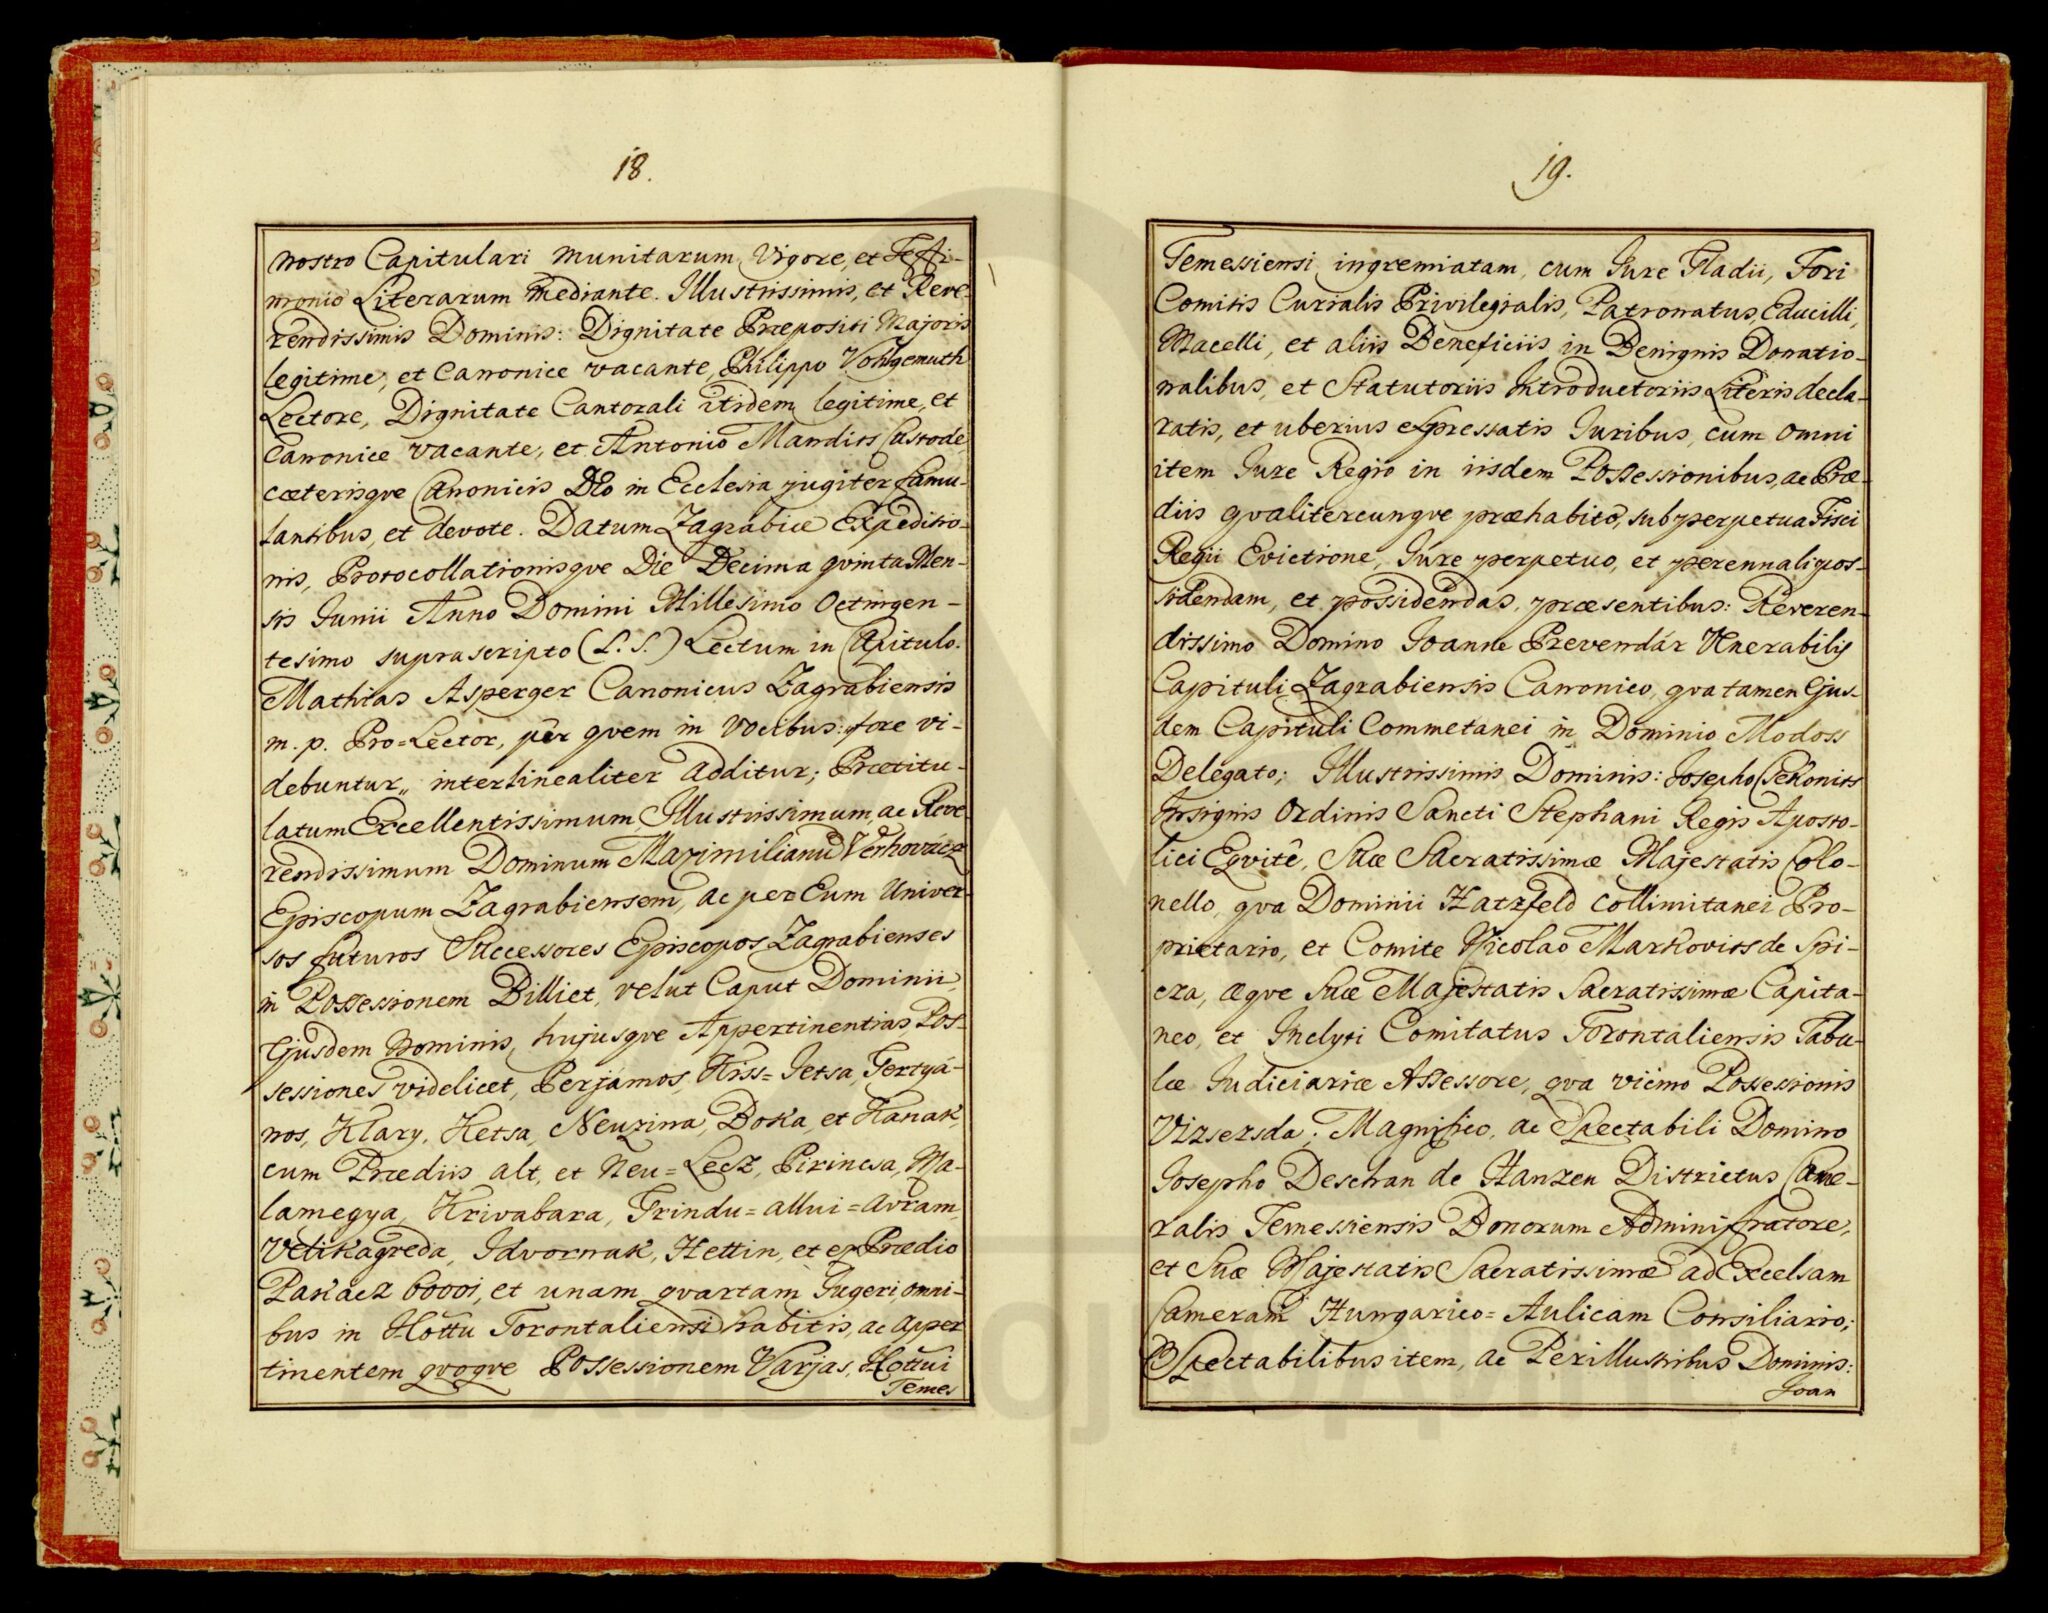 18.
nostro Capitulari munitarum Vigore, et Testi-
monio Literarum mediante. Illustrissimis, et Reve-
rendissimis Dominis: Dignitate Præpositi Majoris
legitime, et Canonice vacante, Philippo Vohlgemuth
Lectore, Dignitate Cantorali itidem legitime, et
Canonice vacante, et Antonio Mandits Custode,
cæterisqve Canonicis DEo in Ecclesia jugiter famu-
lantibus, et devote. Datum Zagrabiæ Expeditio-
nis, Protocollationisqve Die Decima qvinta Men-
sis Junii Anno Domini Millesimo Octingen-
tesimo supra scripto (L. S.) Lectum in Capitulo.
Mathias Asperger Canonicus Zagrabiensis
m. p. Pro=Lector, per qvem in Vocibus: fore vi-
debuntur„ interlinealiter additur; Prætitu-
latum Excellentissimum, Illustrissimum, ac Reve-
rendissimum Dominum Maximilianū Verhovácz
Episcopum Zagrabiensem, ac per Eum Univer-
sos futuros Successores Episcopos Zagrabienses
in Possessionem Billiet, velut Caput Dominii,
Ejusdem Nominis, hujusqve Appertinentias, Pos-
sessiones videlicet, Perjámos, Kiss=Jetsa, Tertyá-
nos, Klary, Ketsa, Neuzina, Boka, et Kanak,
cum Prædiis alt, et Neu=Lecz, Pirincsa, Ma-
lamegya, Krivabara, Grindu=allui=Avram,
Velikagreda, Idvornak, Hettin, et ex Prædio
Pakacz 6000i, et unam qvartam Jugeri, omni-
bus in Kōttu Torontaliensi habitis, ac apper
tinentem qvoqve Possessionem Varjas, Kōttui
Temes
19.
Temessiensi ingremiatam, cum Jure Gladii, Fori
Comitis Curialis Privilegialis, Patronatus, Educilli,
Macelli, et aliis Beneficiis in Benignis Donatio-
nalibus, et Statutoriis Introductoriis Literis decla-
ratis, et uberius expressatis Juribus, cum omni
item Jure Regio in iisdem Possessionibus, ac Præ-
diis qvalitercunqve præhabito, sub perpetua Fisci
Regii Evictione, Jure perpetuo, et perennali pos-
sidendam, et possidendas, præsentibus: Reveren-
dissimo Domino Joanne Prevendár Venerabilis
Capituli Zagrabiensis Canonico, qva tamen Ejus-
dem Capituli Commetanei in Dominio Modoss
Delegato; Illustrissimis Dominis: Josepho Csekonits
Insignis Ordinis Sancti Stephani Regis Aposto-
lici Eqvite, Suæ Sacratissimæ Majestatis Colo-
nello, qva Dominii Hatzfeld Collimitanei Pro-
prietario, et Comite Nicolao Markovits de Spi-
cza, æqve Suæ Majestatis Sacratissimæ Capita-
neo, et Inclyti Comitatus Torontaliensis Tabu-
læ Judiciariæ Assessore, qva vicino Possessionis
Vizsezsda; Magnifico, ac Spectabili Domino
Josepho Deschan de Hanzen Districtus Came-
ralis Temessiensis Bonorum Administratore,
et Suæ Majestatis Sacratissimæ ad Excelsam
Cameram Hungarico=Aulicam Consiliario;
Spectabilibus item, ac Perillustribus Dominis:
Joan